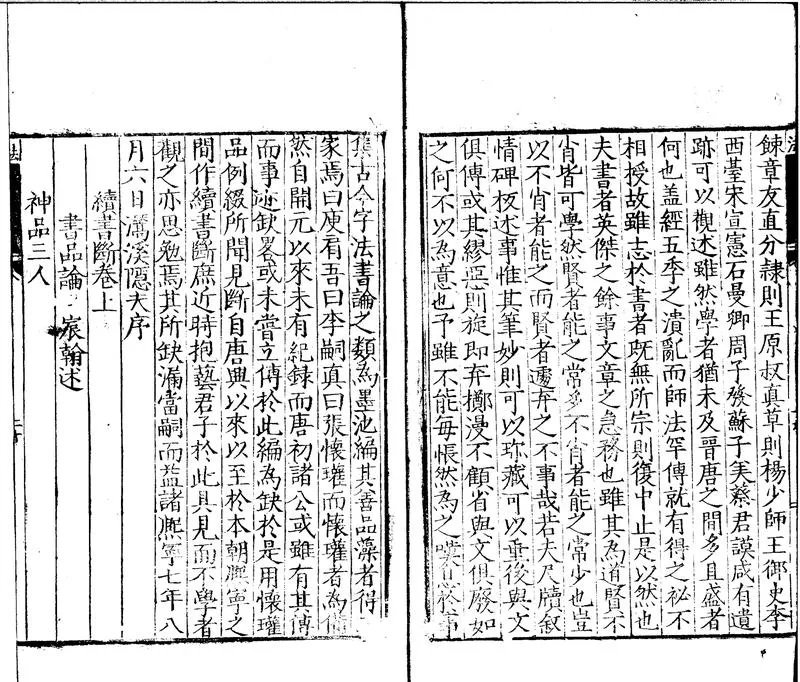 餗章友直分隷則王原叔真草則楊少師王御史李
西䑓宋宣憲石曼卿周子發蘇子美蔡君謨咸有遺
跡可以觀述雖然學者猶未及晉唐之間多且盛者
何也盖經五季之潰亂而師法罕傳就有得之祕不
相授故雖志於書者既無所宗則復中止是以然也
夫書者英傑之餘事文章之急務也雖其為道賢不
肖皆可學然賢者能之常多不肖者能之常少也豈
以不肖者能之而賢者遽弃之不事哉若夫尺牘敘
情碑板述事惟其筆妙則可以珎藏可以垂後與文
俱傳或其繆惡則旋即弃擲漫不顧省與文俱廢如
之何不以為意也予雖不能每悵然為之嘆且於事
集古今字法書論之類為墨池編其善品藻者得
家焉曰庾肩吾曰李嗣真曰張懷瓘而懷瓘者為備
然自開元以來未有紀録而唐初諸公或雖有其傳
而事迹缺畧或未嘗立傳於此編為缺於是用懷瓘
品例綴所聞見斷自唐興以來以至於本朝熈寧之
間作續書斷庶近時抱藝君子於此具見而不學者
觀之亦思勉焉其所缺漏當嗣而益諸熈寧七年八
月六日灊溪隠夫序
續書斷卷上
書品論 宸翰述
神品三人